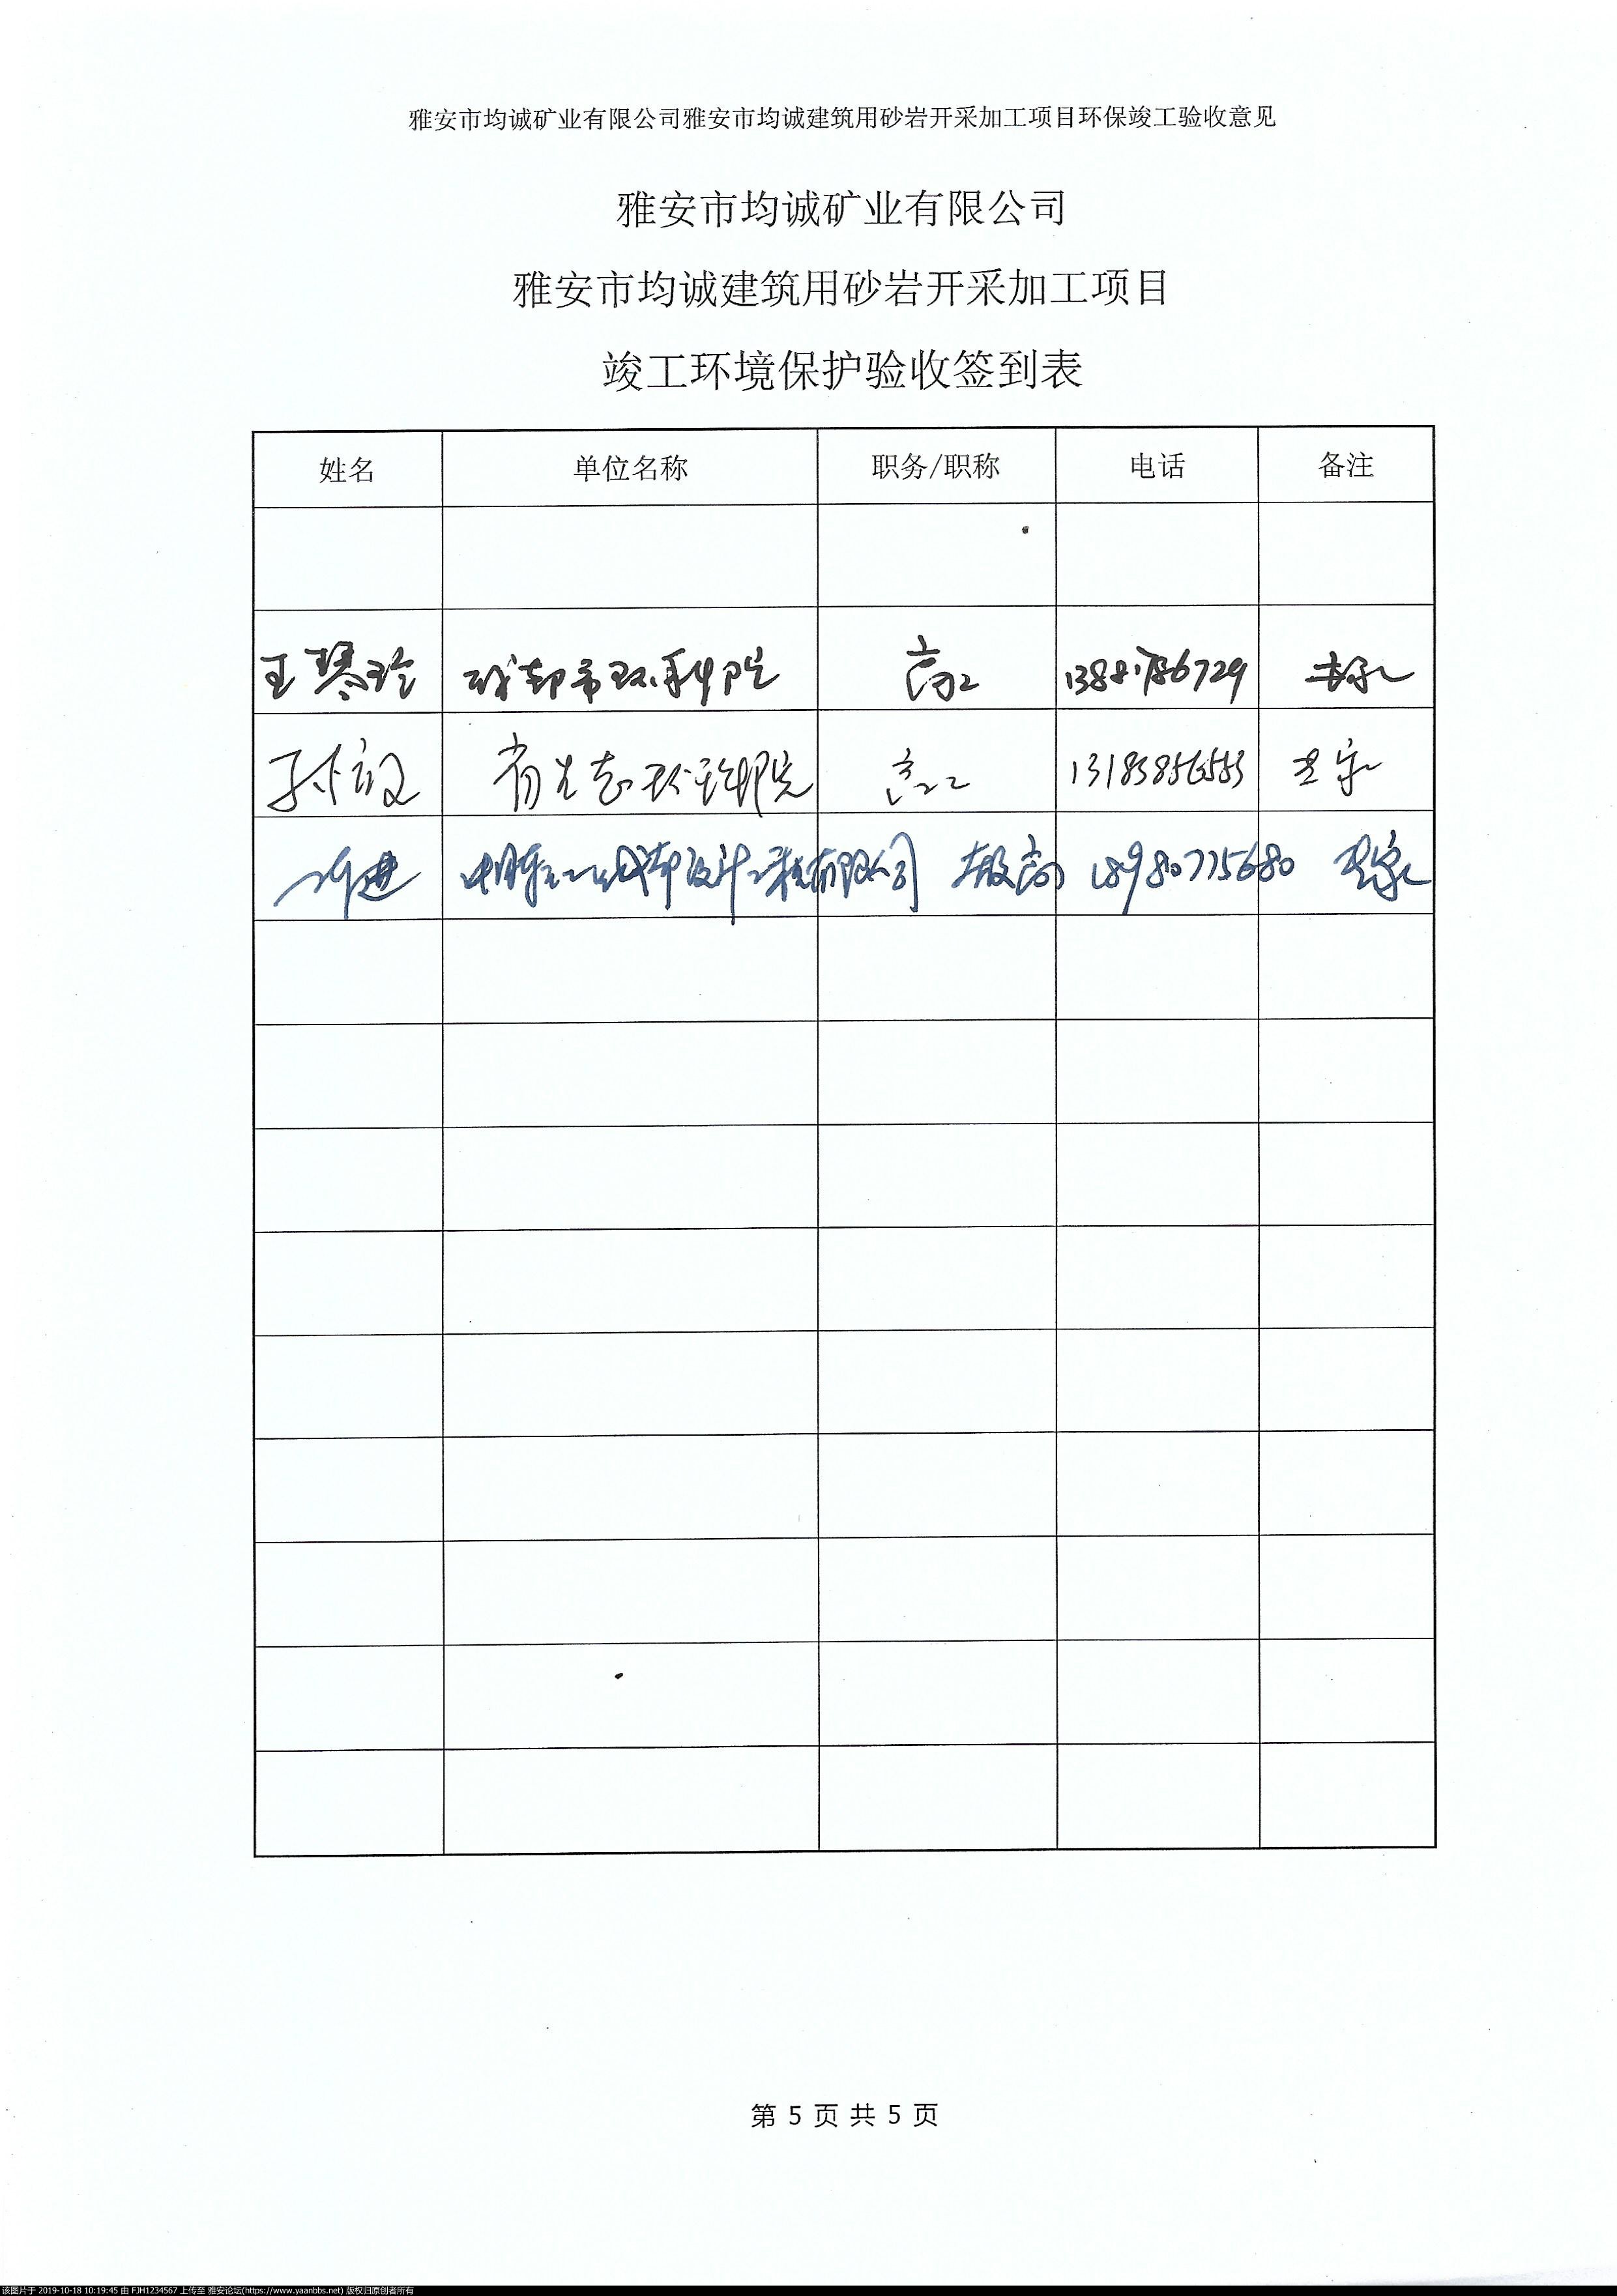 雅安市均诚矿业有限公司雅安市均诚建筑用砂岩开采加工项目环保竣工验收意见
雅安市均诚矿业有限公司
雅安市均诚建筑用砂岩开采加工项目
竣工环境保护验收签到表
姓名 单位名称 职务/职称 电话 备注
王琴玲 成都市环科院 高工 专家
高工 专家
成都设计工程有限公司 教高 18980775680 专家
第 5 页 共 5 页
该图片于 2019-10-18 10:19:45 由 FJH1234567 上传至 雅安论坛(https://www.yaanbbs.net) 版权归原创者所有